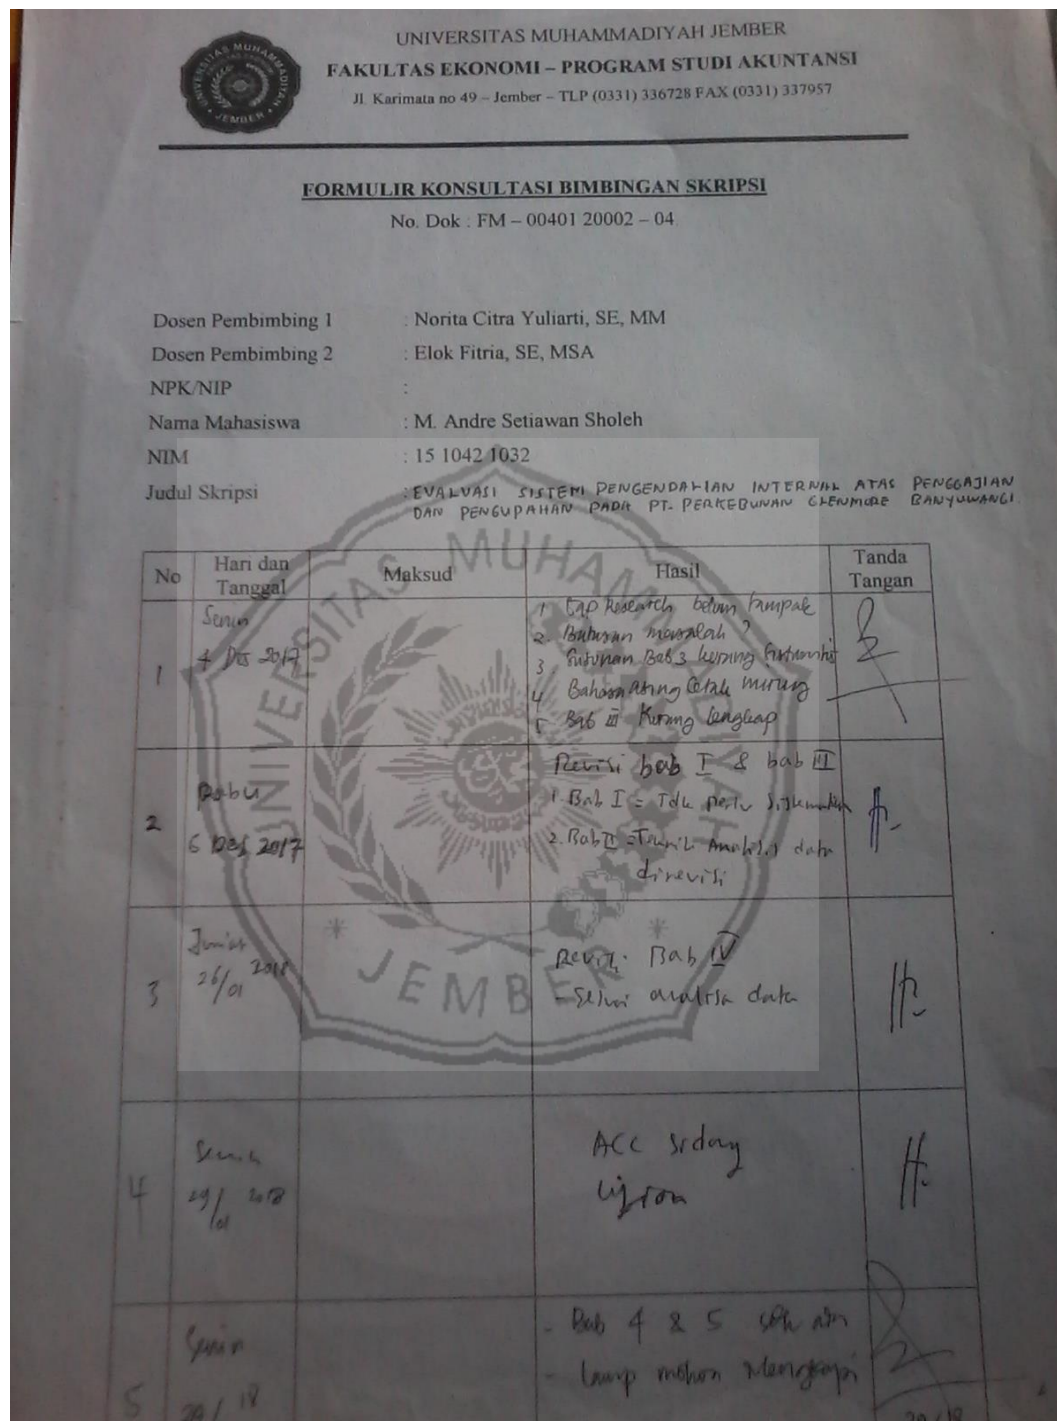 UNIVERSITAS MUHAMMADIYAH JEMBER
FAKULTAS EKONOMI – PROGRAM STUDI AKUNTANSI
Jl. Karimata no 49 – Jember – TLP (0331) 336728 FAX (0331) 337957
UNIVERSITAS MUHAMMADIYAH
JEMBER
FORMULIR KONSULTASI BIMBINGAN SKRIPSI
No. Dok : FM – 00401 20002 – 04
Dosen Pembimbing 1 : Norita Citra Yuliarti, SE, MM
Dosen Pembimbing 2 : Elok Fitria, SE, MSA
NPK/NIP :
Nama Mahasiswa : M. Andre Setiawan Sholeh
NIM : 15 1042 1032
Judul Skripsi : EVALUASI SISTEM PENGENDALIAN INTERNAL ATAS PENGGAJIAN
DAN PENGUPAHAN PADA PT. PERKEBUNAN GLENMORE BANYUWANGI
No Hari dan Tanggal Maksud Hasil Tanda Tangan
1 Senin
4 Des 2017
1 Gap Research belum tampak
2. masalah ?
3 Susunan Bab 3 kurang
4 Bahasa Asing Cetak miring
5 Bab III Kurang lengkap
2 Rabu
6 Des 2017
Revisi bab I & bab III
1. Bab I = Tdk perlu
2. Bab = Analisis data
direvisi
3 Jum'at
26/01 2018
Revisi Bab IV
- analisa data
4 Senin
29/01 2018
ACC sidang
ujian
5 Senin
29/ 18
- Bab 4 & 5
- Lamp mohon
UNIVERSITAS MUHAMMADIYAH
JEMBER